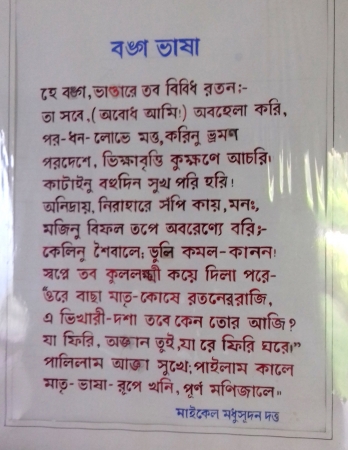 বঙ্গ ভাষা
হে বঙ্গ, ভাণ্ডারে তব বিবিধ রতন:-
তা সবে, (অবোধ আমি!) অবহেলা করি,
পর-ধন-লোভে মত্ত, করিনু ভ্রমণ
পরদেশে, ভিক্ষাবৃত্তি কুক্ষণে আচরি।
কাটাইনু বহুদিন সুখ পরি হরি!
অনিদ্রায়, নিরাহারে সঁপি কায়, মনঃ,
মজিনু বিফল তপে অবরেণ্যে বরি;-
কেলিনু শৈবালে; ভুলি কমল-কানন!
স্বপ্নে তব কুললক্ষ্মী কয়ে দিলা পরে-
ওরে বাছা মাতৃ-কোষে রতনের রাজি,
এ ভিখারী-দশা তবে কেন তোর আজি?
যা ফিরি, অজ্ঞান তুই, যা রে ফিরি ঘরে।”
পালিলাম আজ্ঞা সুখে; পাইলাম কালে
মাতৃ-ভাষা-রূপে খনি, পূর্ণ মণিজালে॥
মাইকেল মধুসূদন দত্ত